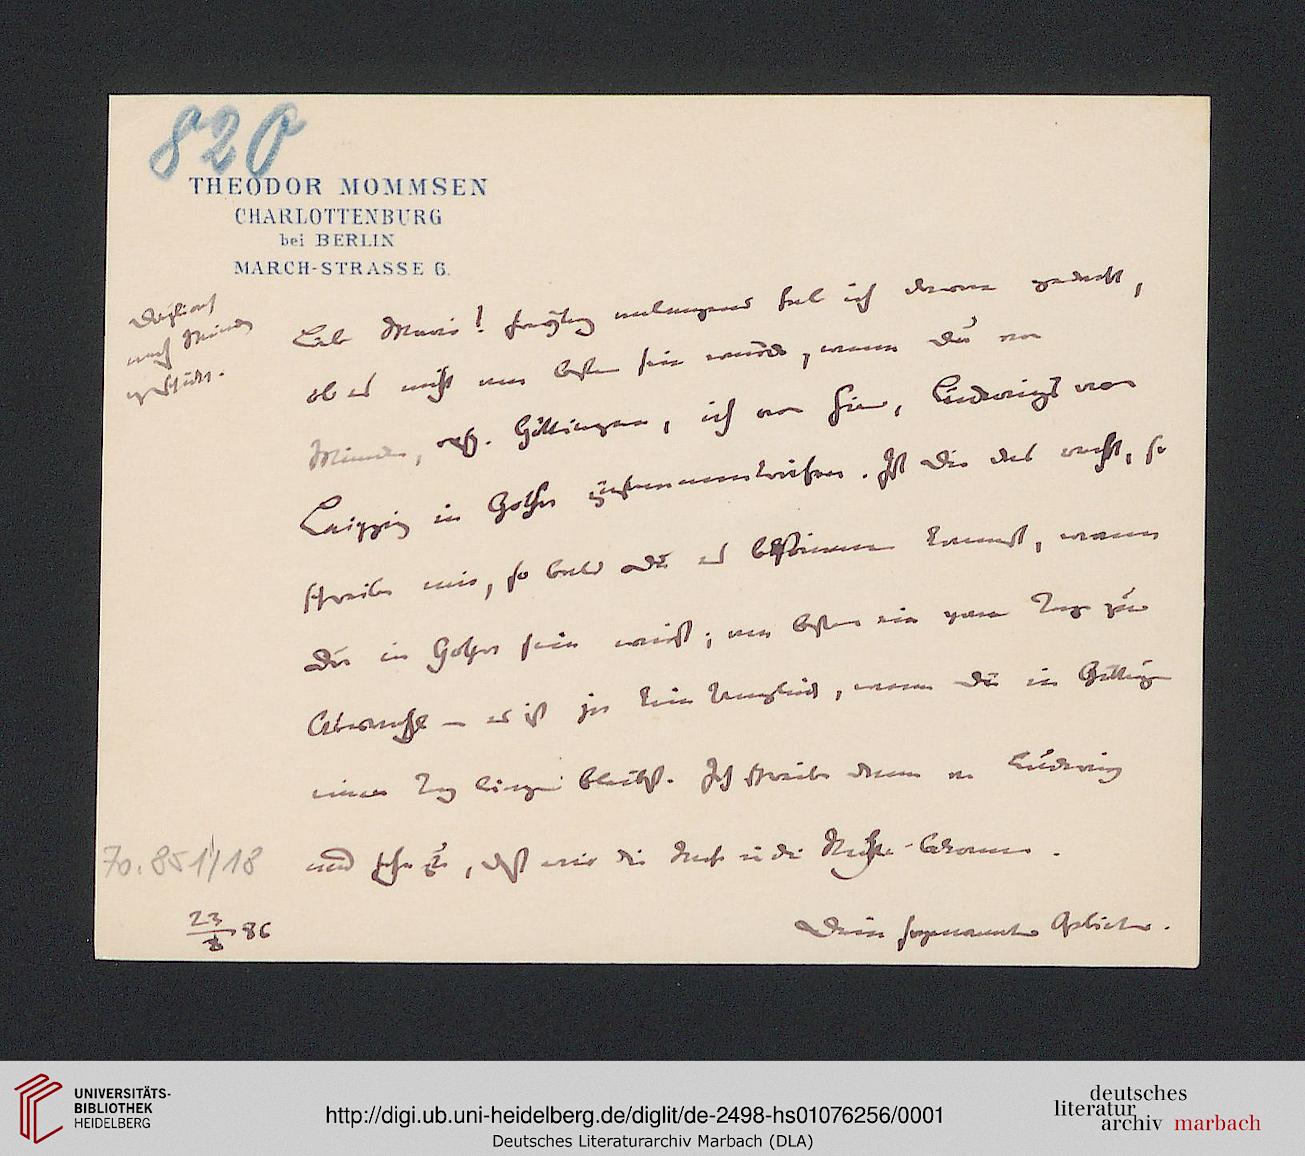 820
THEODOR MOMMSEN
CHARLOTTENBURG
bei BERLIN
MARCH-STRASSE 6.
nach Minden
Liebe Marie! habe ich daran gedacht,
ob es nicht am besten sein würde, wenn Du von
Minden, resp. Göttingen, ich von hier, Ludwig von
Leipzig in Gotha zusammenträfen. Ist Dir das recht, so
schreibe mir, so bald Du es bestimmen kannst, wann
Du in Gotha sein wirst; am besten ein paar Tage zur
Auswahl – es ist ja kein Unglück, wenn Du in Götting
einen Tag länger bleibst. Ich schreibe dann an Ludwig
und sehe zu, daß wir die Sache in die Reihe bekommen.
70.851/18
23/8 86
Dein sogenannter Geliebter.
UNIVERSITÄTS-
BIBLIOTHEK
HEIDELBERG
http://digi.ub.uni-heidelberg.de/diglit/de-2498-hs01076256/0001
Deutsches Literaturarchiv Marbach (DLA)
deutsches
literatur
archiv marbach